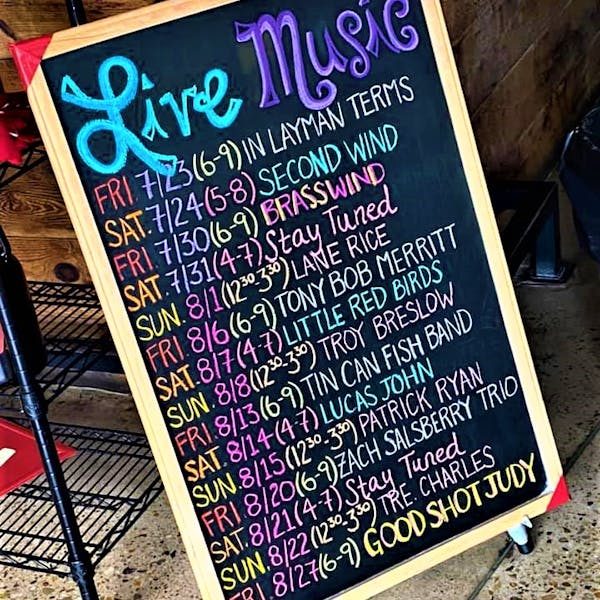 Live Music
FRI. 7/23 (6-9) IN LAYMAN TERMS
SAT. 7/24 (5-8) SECOND WIND
FRI. 7/30 (6-9) BRASSWIND
SAT. 7/31 (4-7) Stay Tuned
SUN. 8/1 (12³⁰-3³⁰) LANE RICE
FRI. 8/6 (6-9) TONY BOB MERRITT
SAT. 8/7 (4-7) LITTLE RED BIRDS
SUN. 8/8 (12³⁰-3³⁰) TROY BRESLOW
FRI. 8/13 (6-9) TIN CAN FISH BAND
SAT. 8/14 (4-7) LUCAS JOHN
SUN. 8/15 (12³⁰-3³⁰) PATRICK RYAN
FRI. 8/20 (6-9) ZACH SALSBERRY TRIO
SAT. 8/21 (4-7) Stay Tuned
SUN. 8/22 (12³⁰-3³⁰) TRE. CHARLES
FRI. 8/27 (6-9) GOOD SHOT JUDY